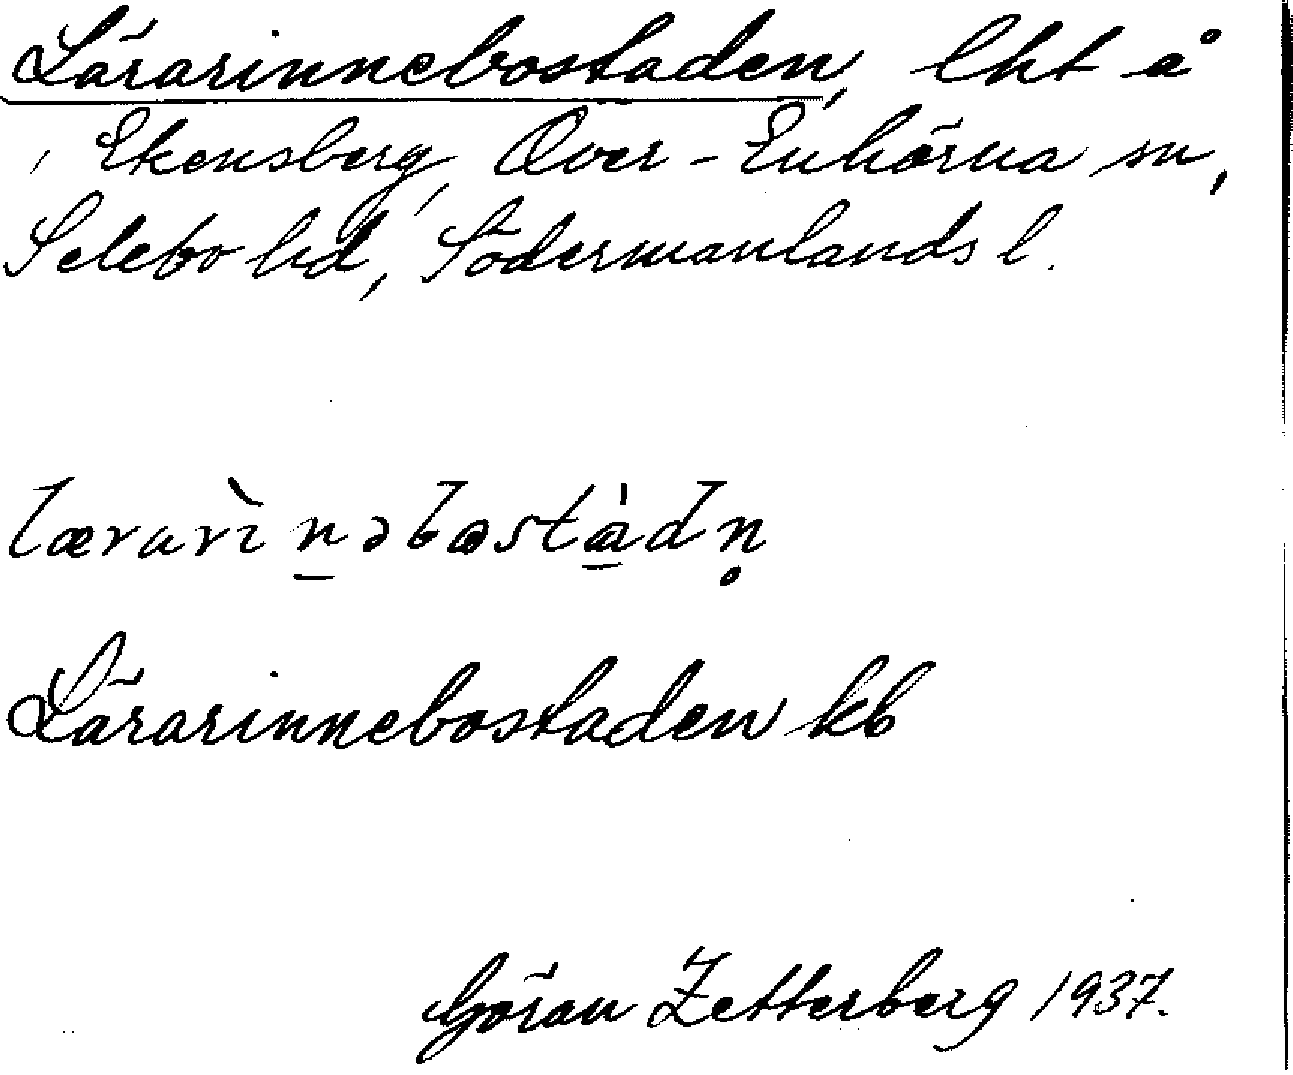 Lärarinnebostaden, lht å
Ekensberg, Över-Enhörna sn,
Selebo hd, Södermanlands l.
lærarìnəbostàdn̥
Lärarinnebostaden kb
Göran Zetterberg 1937.